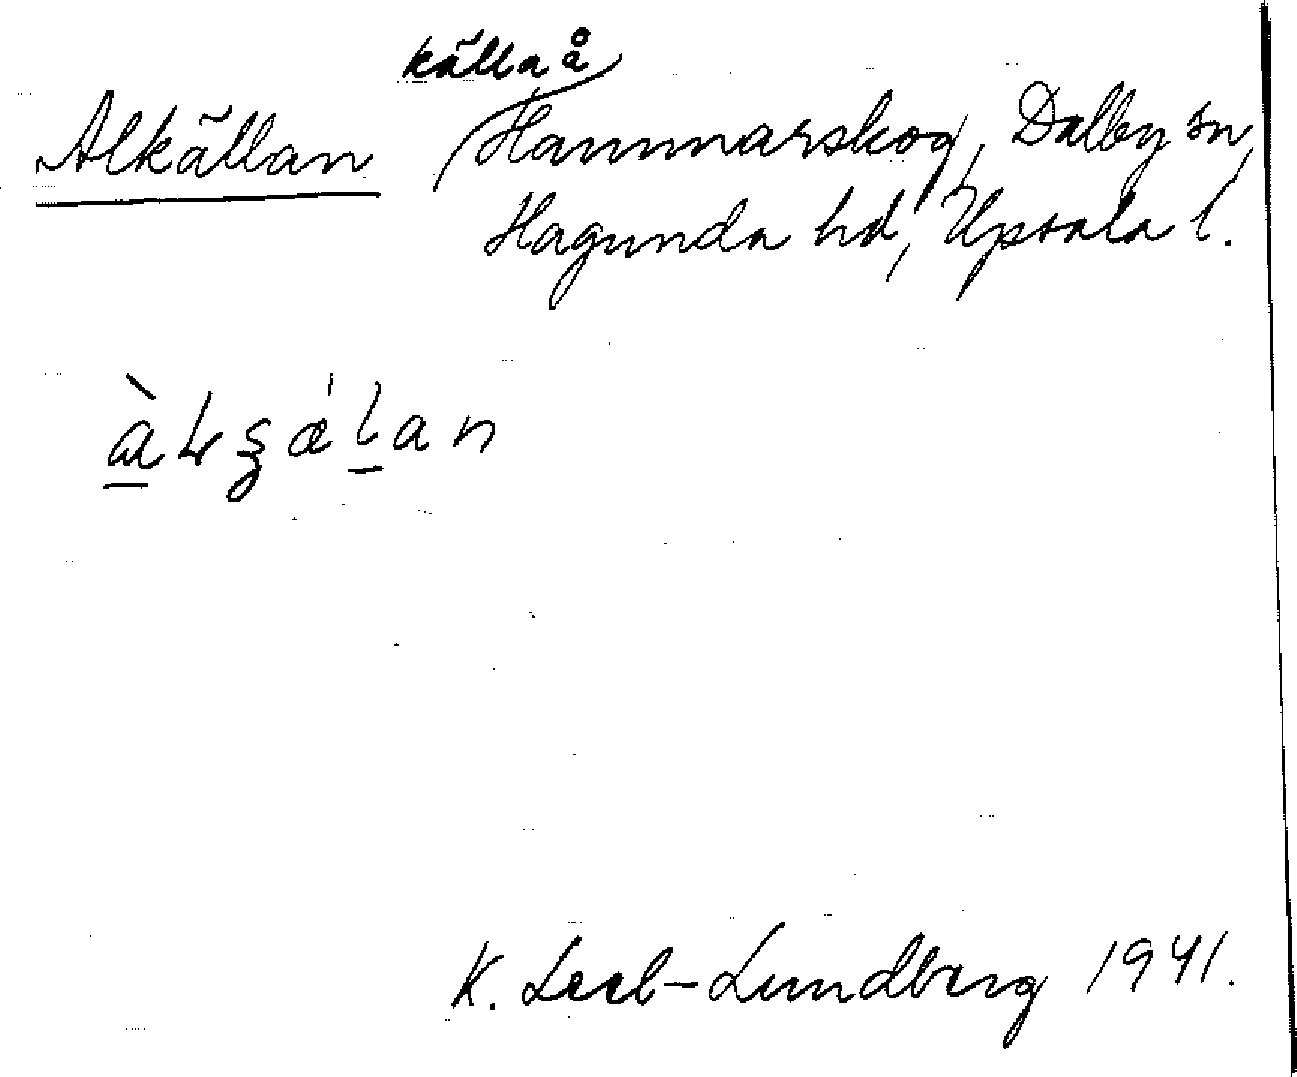 källa å
Alkällan Hammarskog, Dalby sn,
Hagunda hd, Upsala l.
K. Leeb-Lundberg 1941.